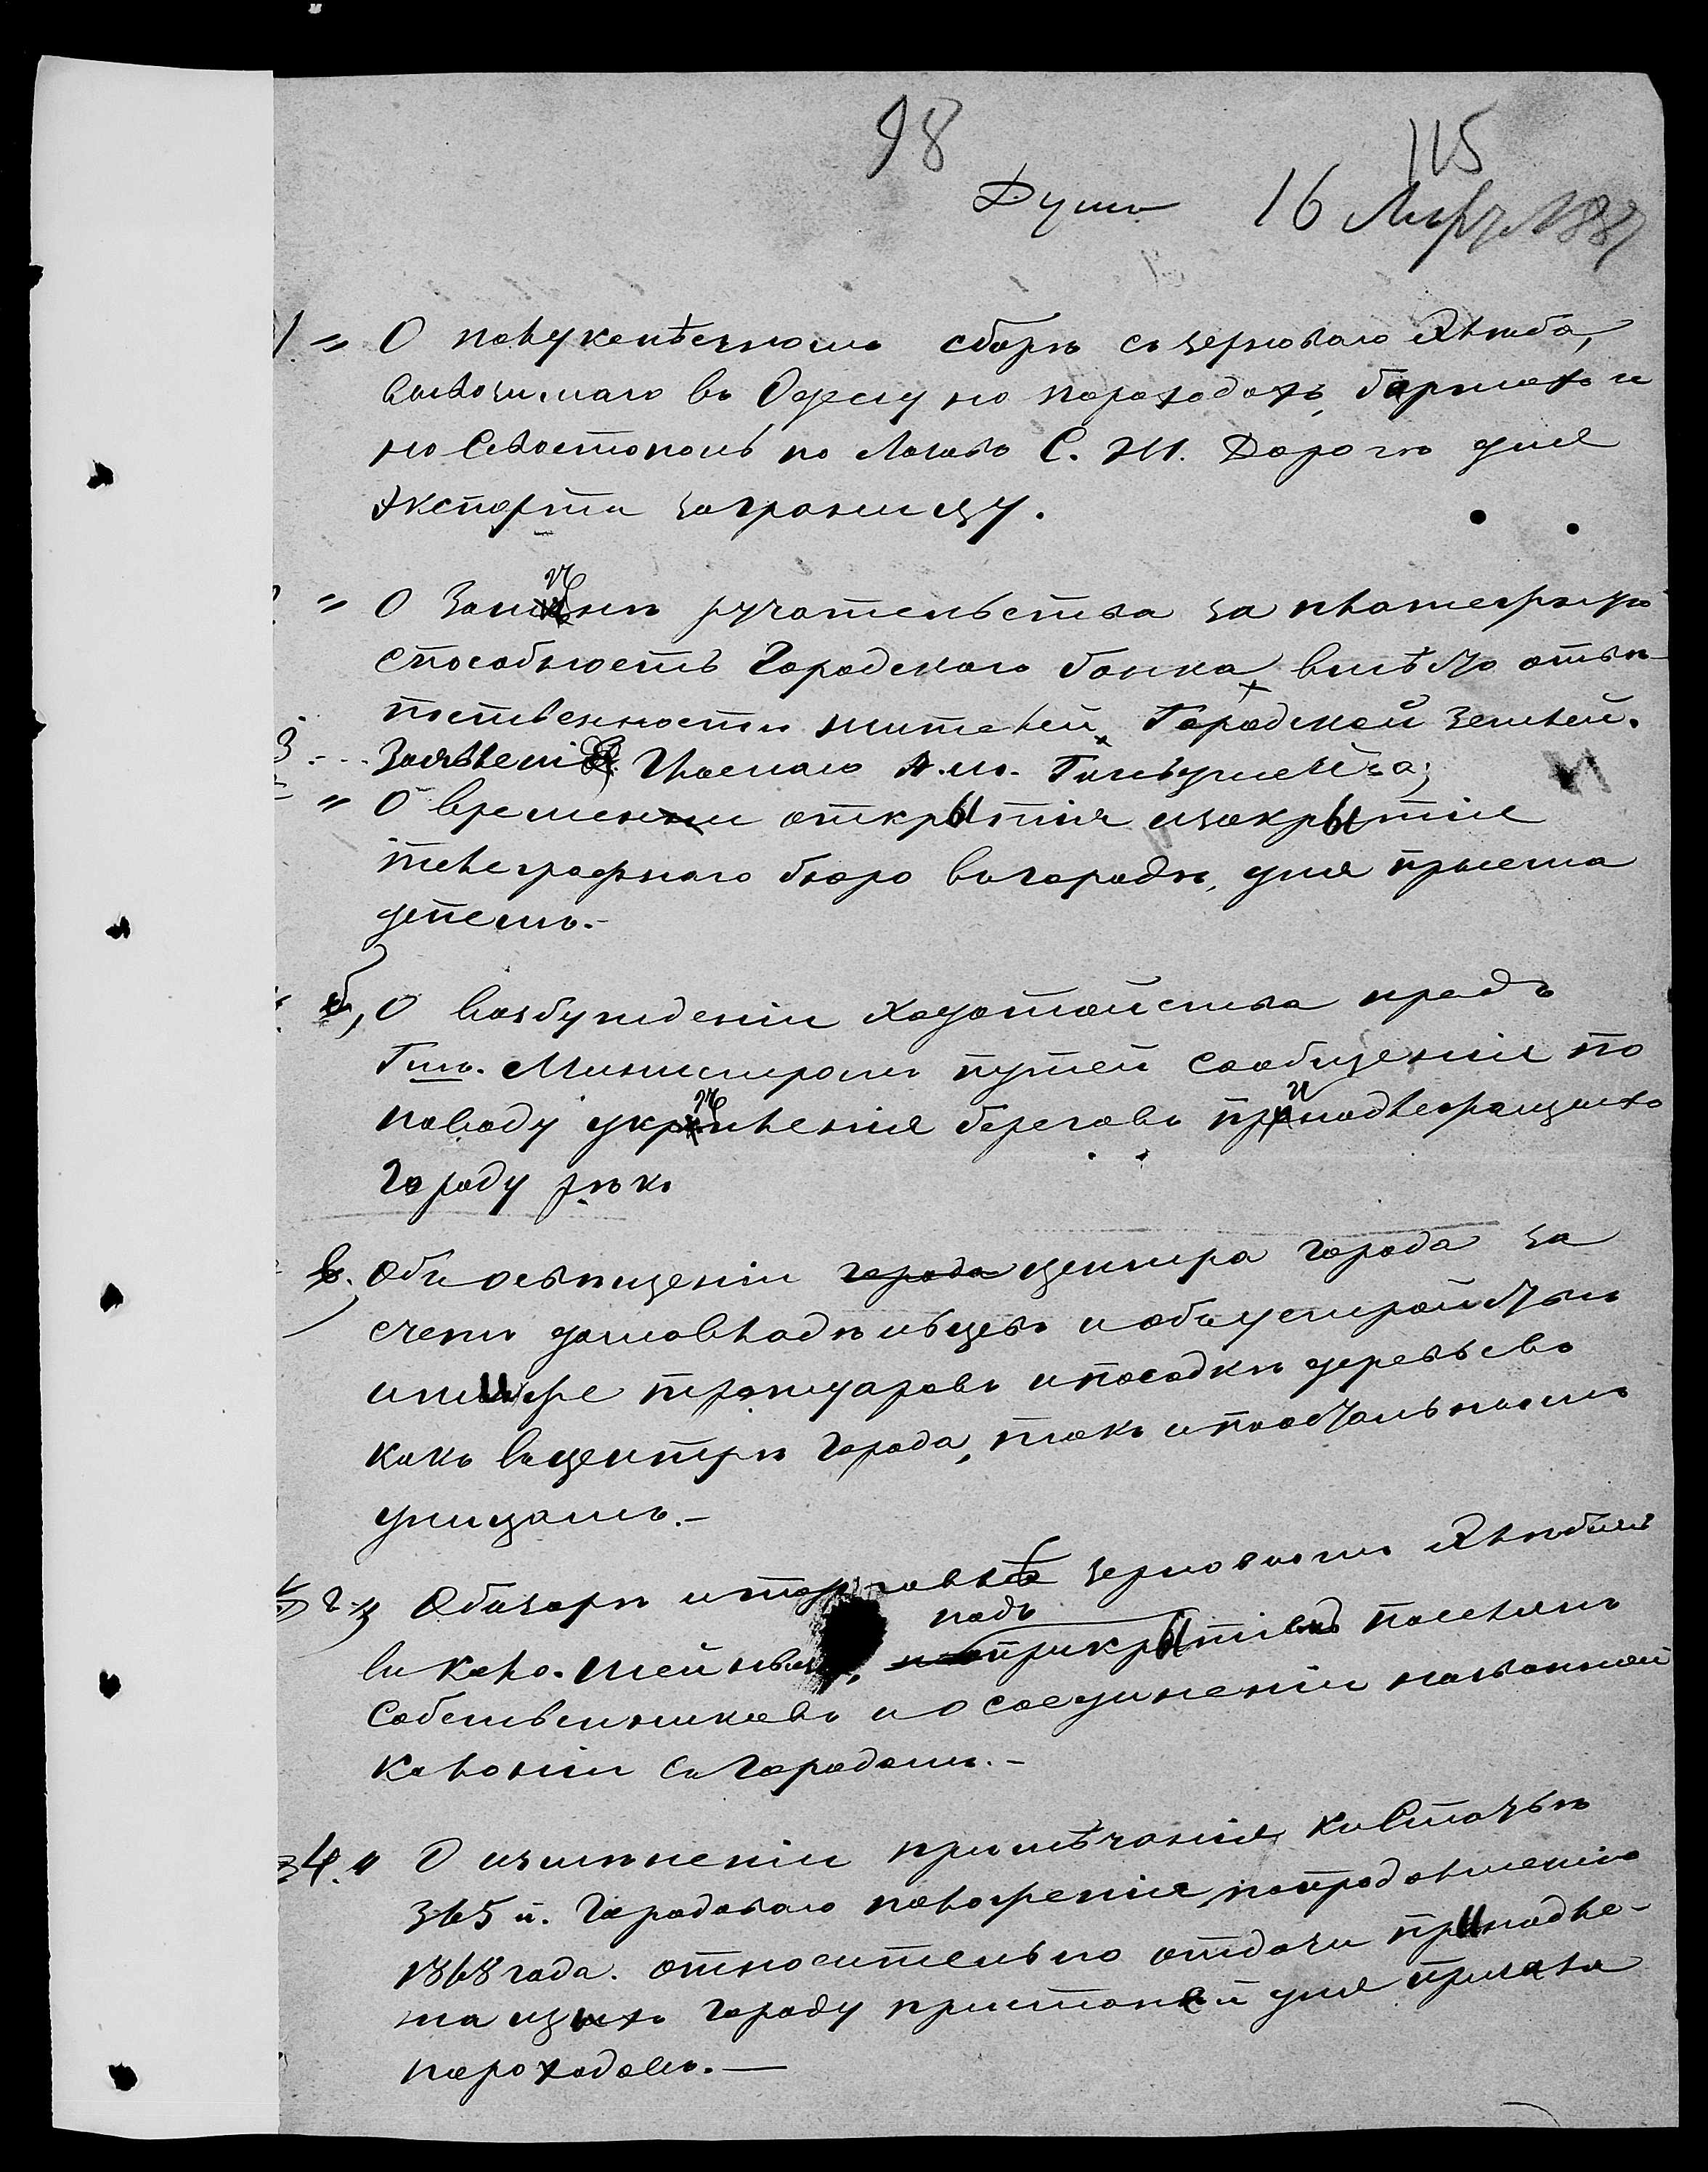 98
115
Дума 16 Март 1887
1 = О полукопѣечномъ сборѣ съ зерноваго хлѣба,
вывозимаго въ Одессу на пароходахъ, баржахъ и
на Севастополь по Лозово С. Ж. Дорогѣ для
экспорта заграницу.
" О замѣнѣ ручательства за платежную
способность Городскаго банка, вмѣсто отвѣт-
ственности жителей, Городской землей.
3 Заявленіе Гласнаго А. М.
" О времени открытія и закрытія
телеграфнаго бюро въ городѣ, для пріема
депешъ.-
б, О возбужденіи ходатайства предъ
Гмъ. Министромъ путей сообщенія по
поводу укрѣпленія береговъ принадлежащихъ
городу рѣкъ
в. Объ освѣщеніи города центра города за
счетъ домовладѣльцевъ и объ устройствѣ
ими же тротуаровъ и посадкѣ деревьевъ
какъ въ центрѣ города, такъ и по остальнымъ
улицамъ.-
г) О базарѣ и торговлѣ зерновымъ хлѣбомъ
въ кол. подъ прикрытіемъ поселянъ
собственниковъ и о соединеніи названной
колоніи съ городомъ.-
4. " О измѣненіи примѣчанія къ статьѣ
365 й. Городоваго положенія, по продолженію
1868 года. относительно отдачи принадле-
жащихъ городу пристаней для причала
пароходовъ.—